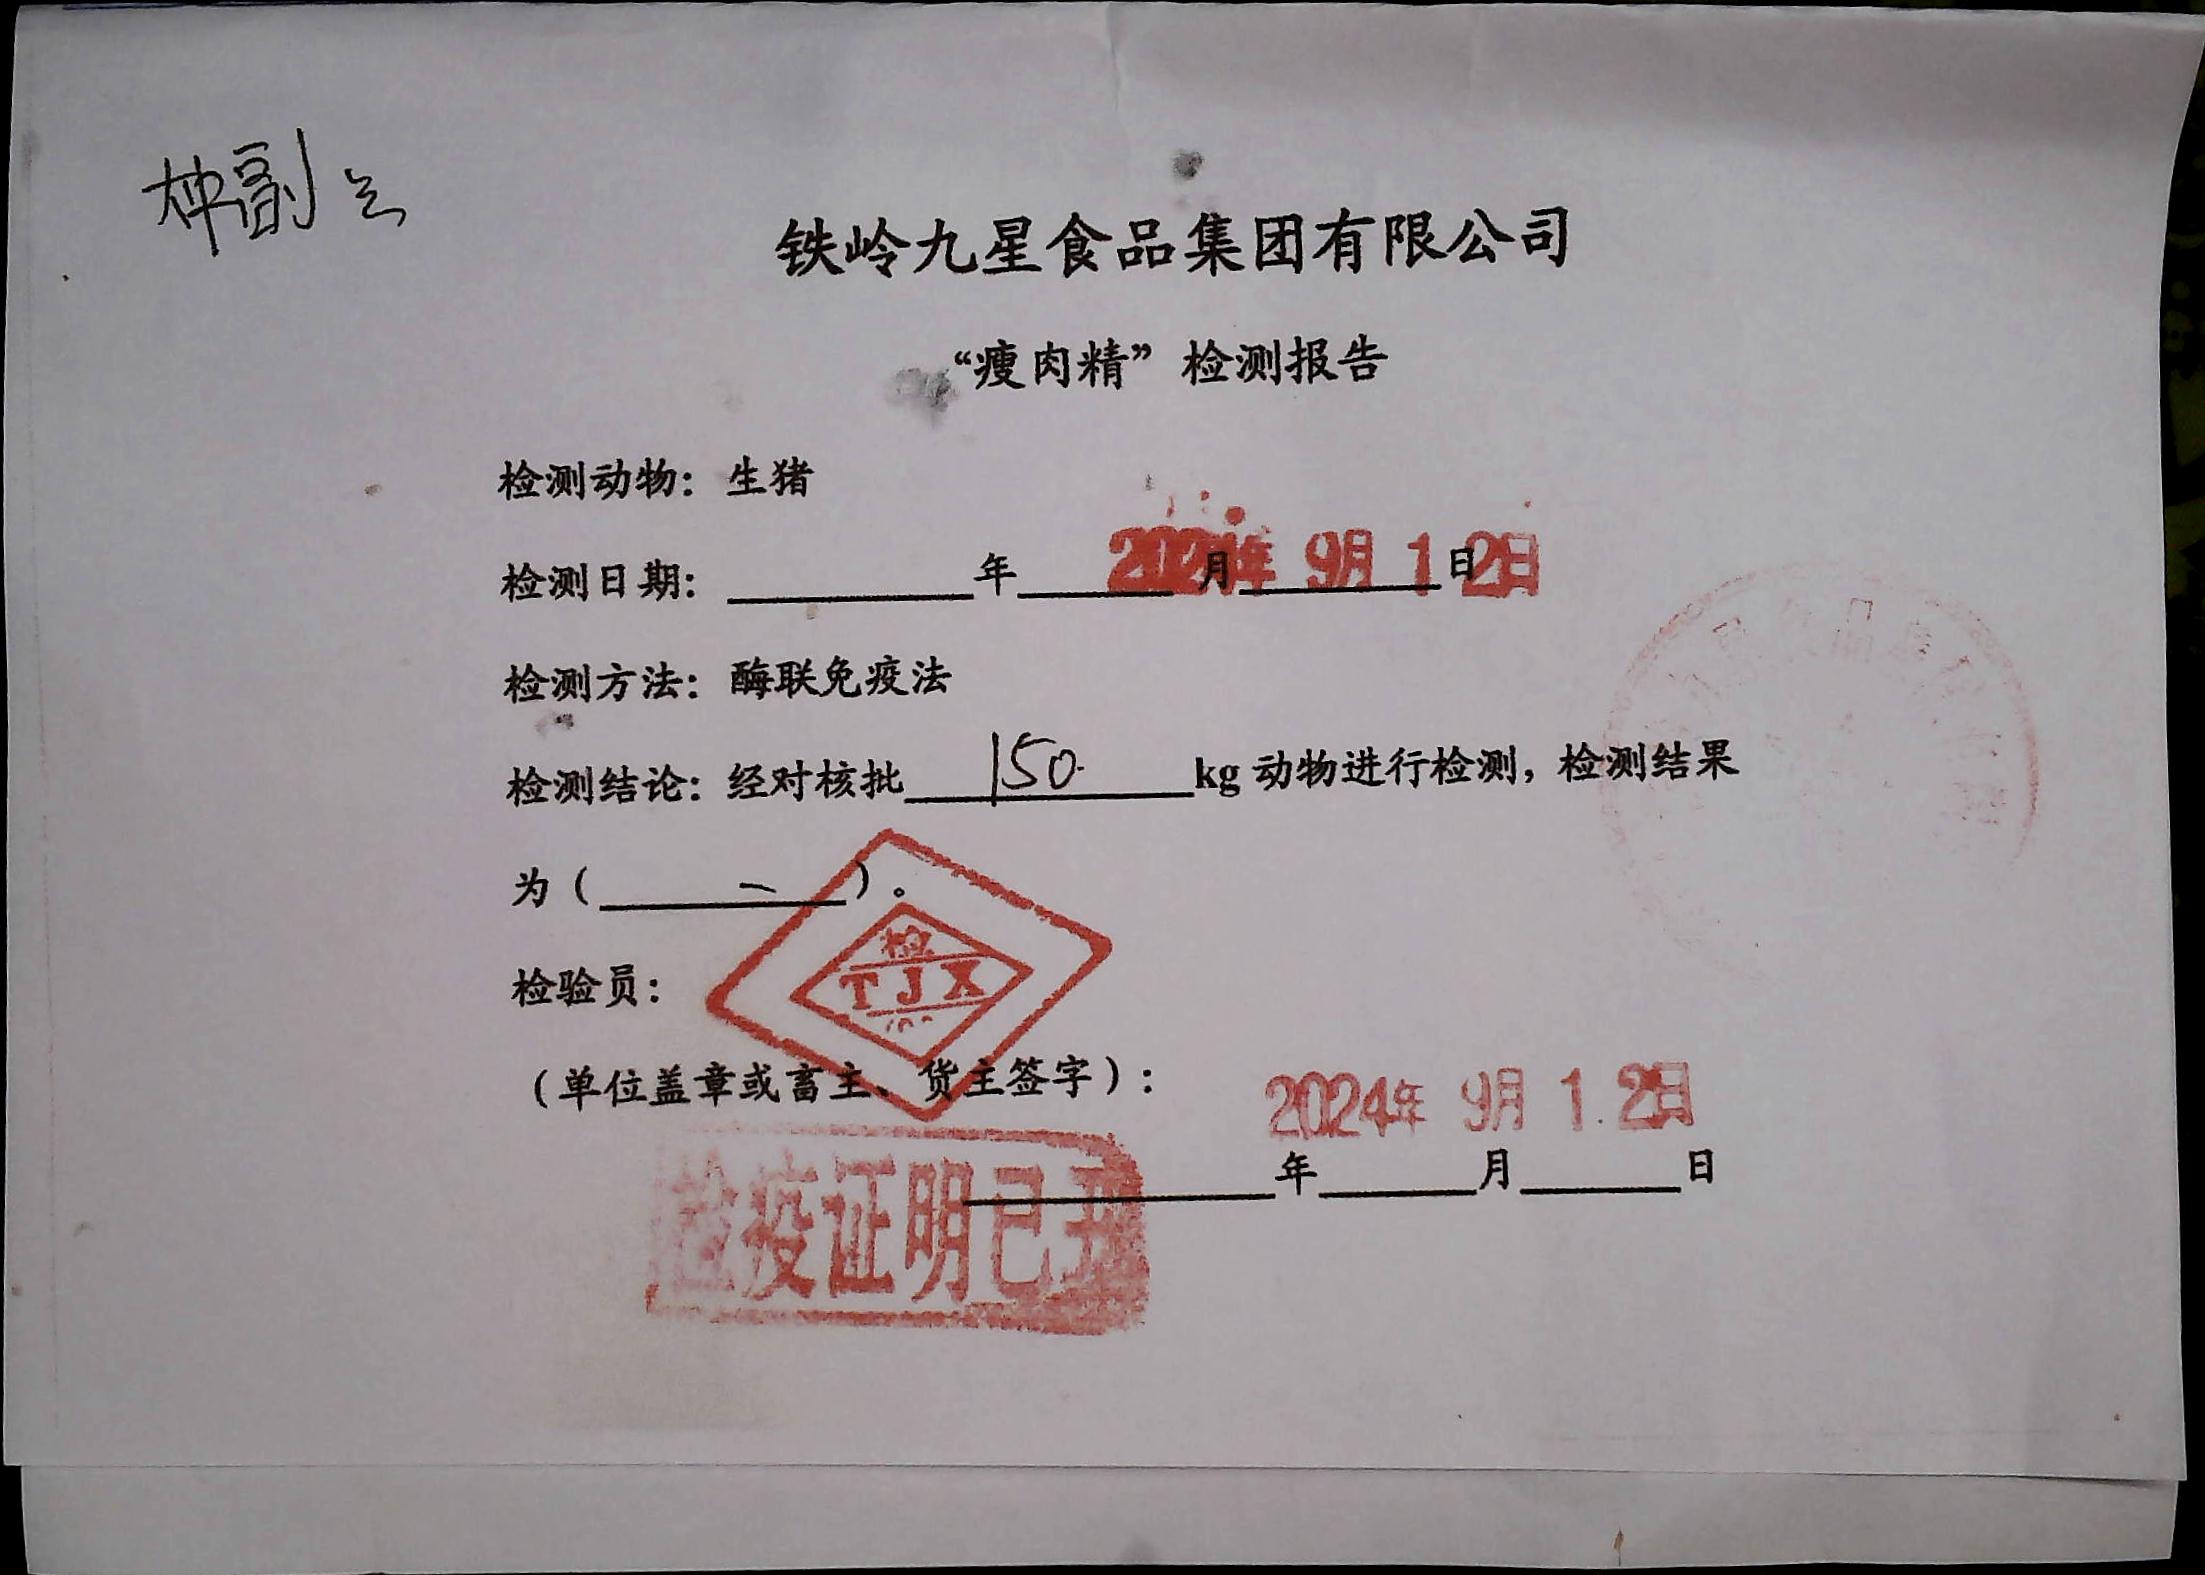 铁岭九星食品集团有限公司
“瘦肉精”检测报告
检测动物：生猪
检测日期：年月日
2024年 9月 1 2日
检测方法：酶联免疫法
检测结论：经对核批150kg动物进行检测，检测结果
为（一）。
检
TJX
检验员：
（单位盖章或畜主、货主签字）：
2024年 9月 1.2日
年月日
检疫证明已开